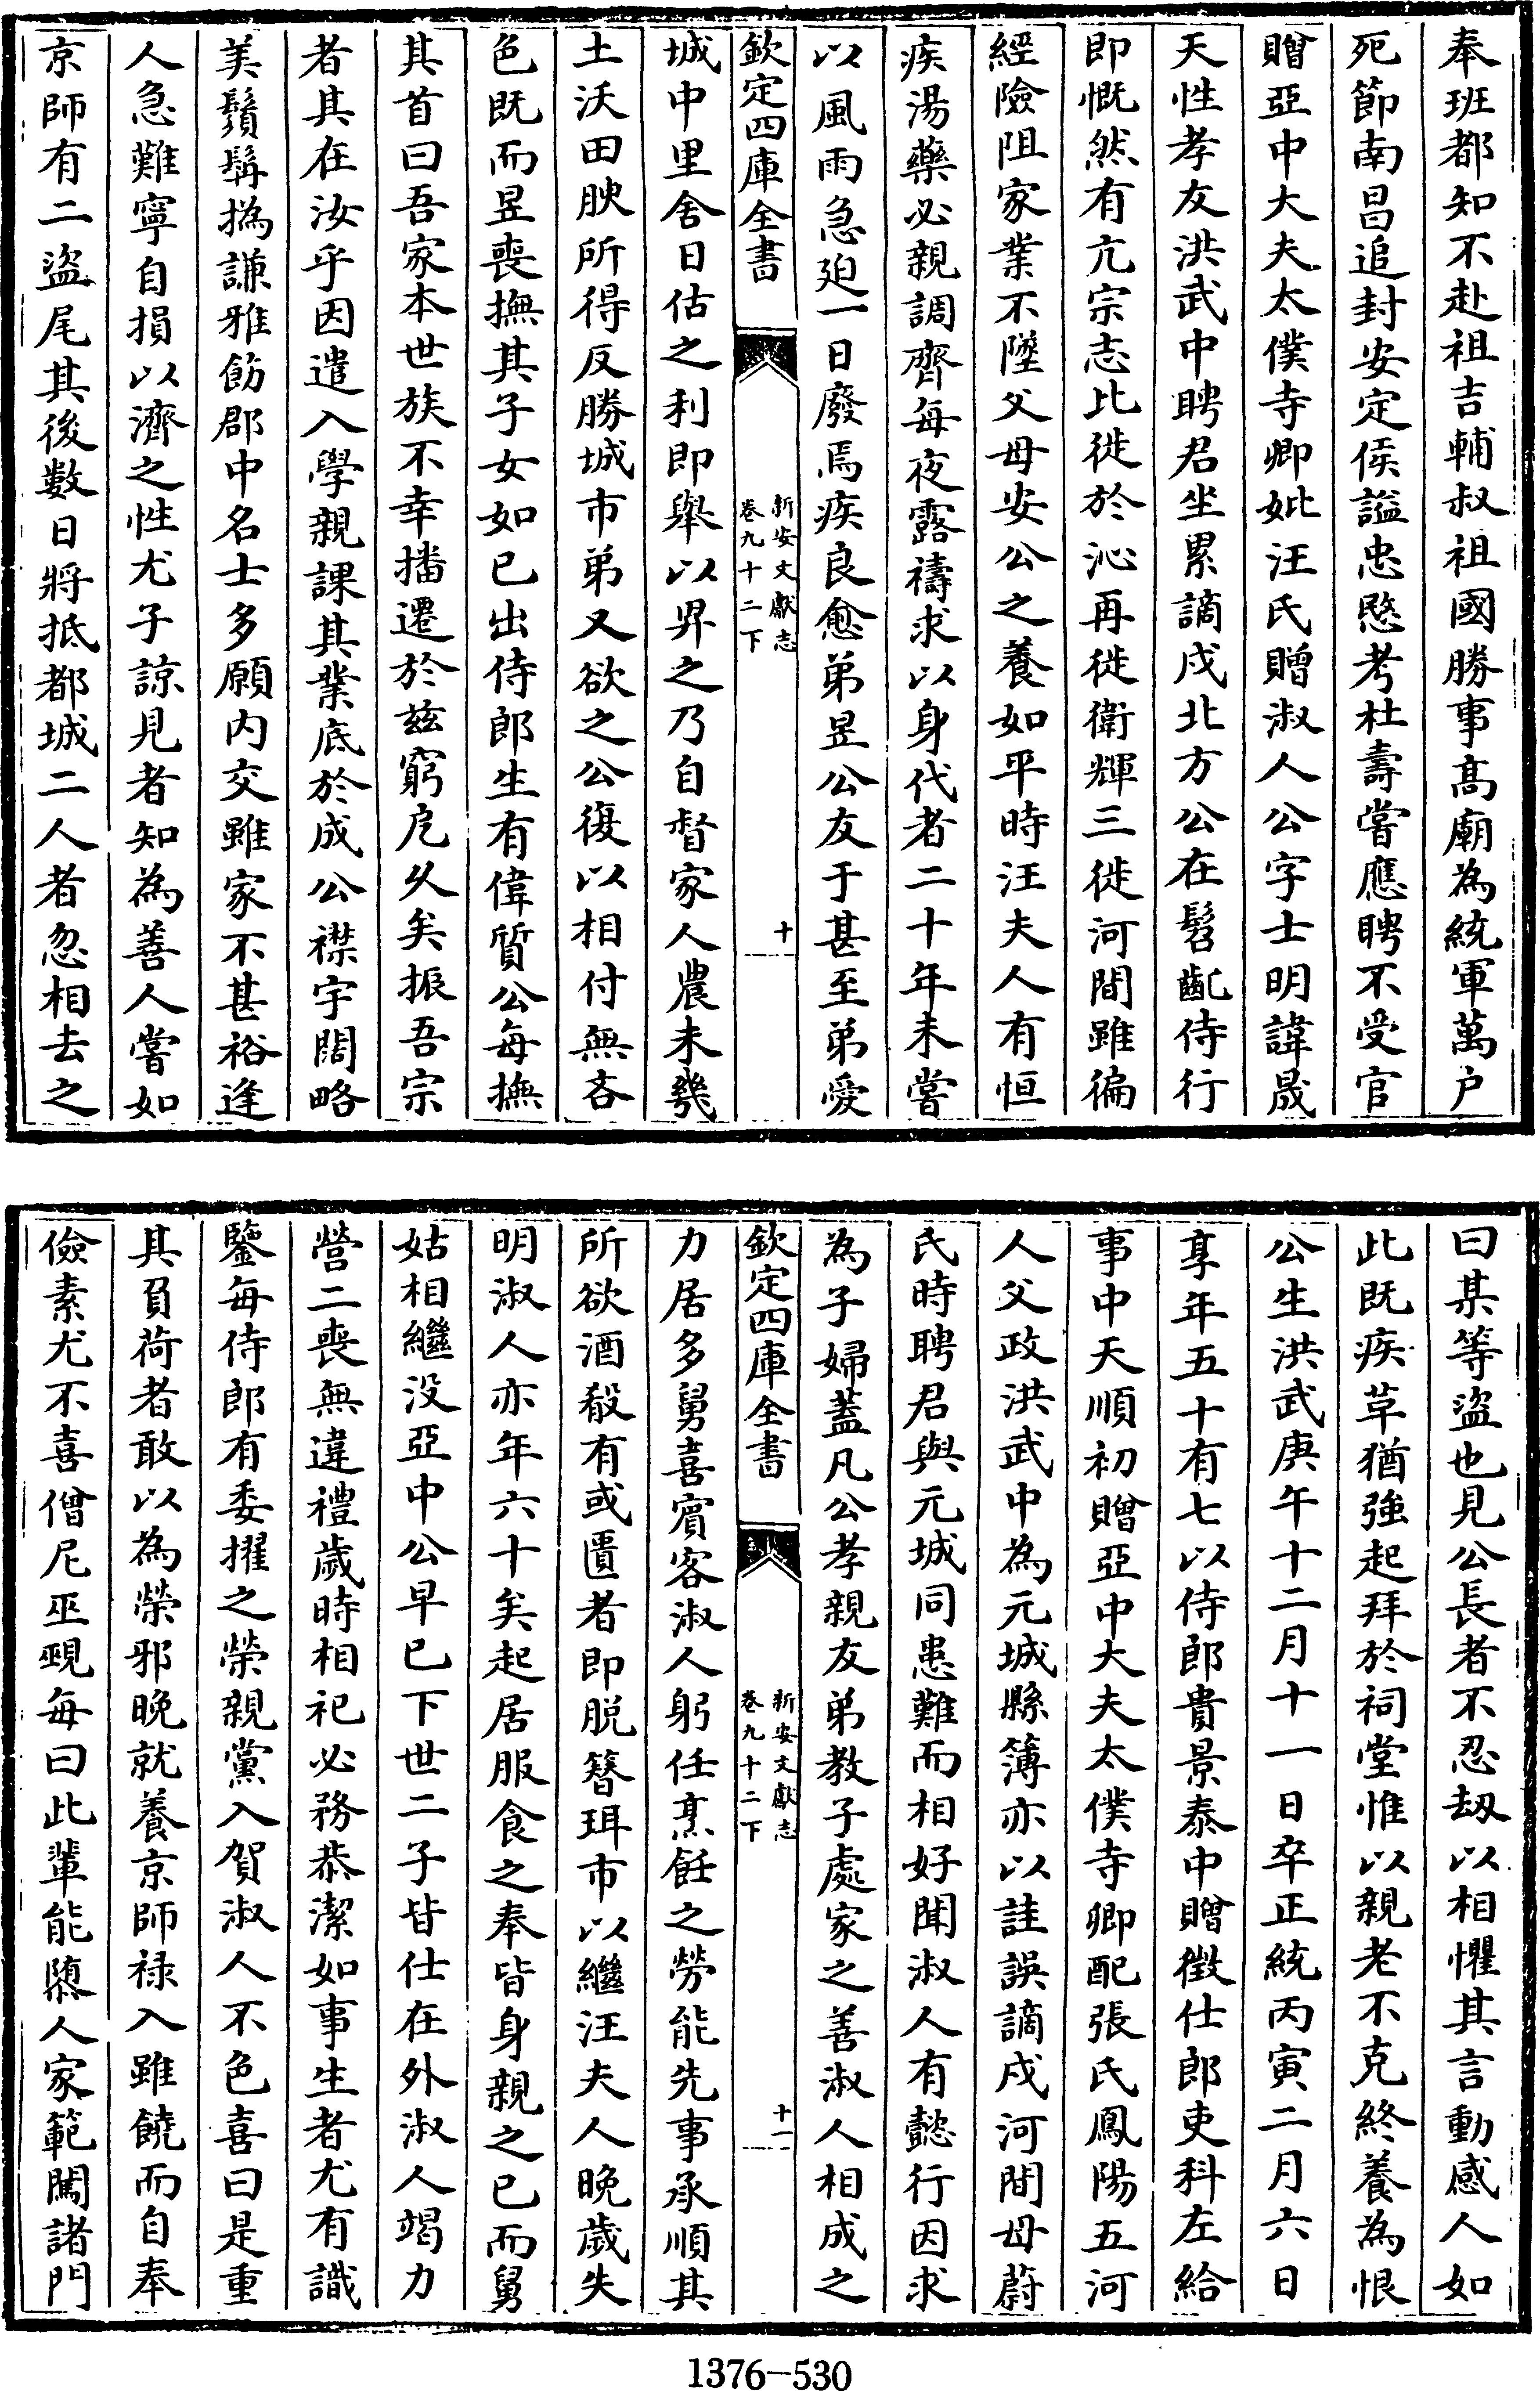 奉班都知不赴祖吉輔叔祖國勝事髙廟為統軍萬户
死節南昌追封安定侯諡忠愍考杜壽嘗應聘不受官
贈亞中大夫太僕寺卿妣汪氏贈淑人公字士明諱晟
天性孝友洪武中聘君坐累謫戍北方公在髫齓侍行
即慨然有亢宗志比徙於沁再徙衛輝三徙河間雖徧
經險阻家業不墜父母安公之養如平時汪夫人有恒
疾湯藥必親調齊每夜露禱求以身代者二十年未嘗
以風雨急廹一日廢焉疾良愈弟昱公友于甚至弟愛
欽定四庫全書
新安文獻志
卷九十二下
十
城中里舍日估之利即舉以畀之乃自督家人農未㡬
土沃田腴所得反勝城市弟又欲之公復以相付無吝
色既而昱喪撫其子女如已出侍郎生有偉質公每撫
其首曰吾家本世族不幸播遷於兹窮戹乆矣振吾宗
者其在汝乎因遣入學親課其業底於成公襟宇闊略
美鬚髯撝謙雅飭郡中名士多願内交雖家不甚裕逢
人急難寧自損以濟之性尤子諒見者知為善人嘗如
京師有二盜尾其後數日將抵都城二人者忽相去之
曰某等盜也見公長者不忍刼以相懼其言動感人如
此既疾草猶強起拜於祠堂惟以親老不克終養為恨
公生洪武庚午十二月十一日卒正統丙寅二月六日
享年五十有七以侍郎貴景泰中贈徵仕郎吏科左給
事中天順初贈亞中大夫太僕寺卿配張氏鳳陽五河
人父政洪武中為元城縣簿亦以詿誤謫戍河間母蔚
氏時聘君與元城同患難而相好聞淑人有懿行因求
為子婦蓋凡公孝親友弟教子處家之善淑人相成之
欽定四庫全書
新安文獻志
卷九十二下
十一
力居多舅喜賓客淑人躬任烹飪之勞能先事承順其
所欲酒殽有或匱者即脱簪珥市以繼汪夫人晚歲失
明淑人亦年六十矣起居服食之奉皆身親之已而舅
姑相繼没亞中公早已下世二子皆仕在外淑人竭力
營二喪無違禮歲時相祀必務恭潔如事生者尤有識
鑒每侍郎有委擢之榮親黨入賀淑人不色喜曰是重
其負荷者敢以為榮邪晚就養京師禄入雖饒而自奉
儉素尤不喜僧尼巫覡每曰此輩能隳人家範闖諸門
1376-530